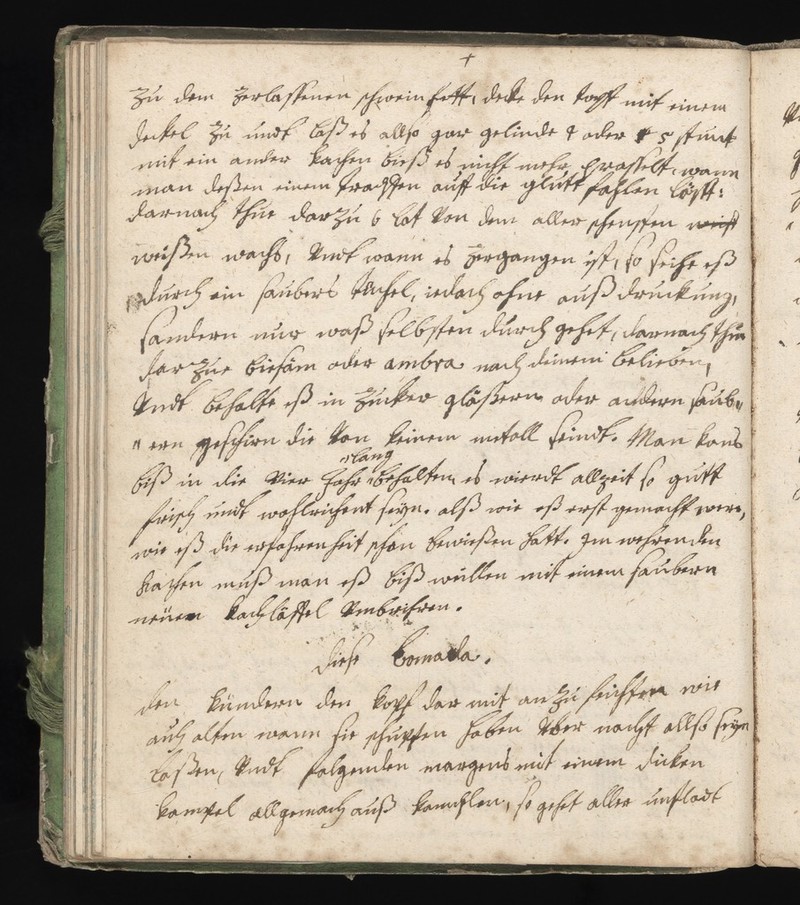 +
zu dem zerlassenen schwein fett, deke den topf mit einem
dekel zu undt laß es allso gar gelinde 4 oder 5 stundt
mit ein ander kochen bieß es nicht mehr prasselt, wann
man deßen einen tropffen auf die glutt fahlen läst:
darnach thue darzu 6 lot von dem aller schensten
weißen wachs, vndt wann es zergangen ist, so seihe eß
durch ein saubers tüchel, iedoch ohne auß druckung,
sondern nur waß selbsten durch gehet, darnach thue
darzue biesam oder ambra nach deinem belieben,
vndt behalte eß in zucker gläßern oder andern saub„
„ern geschirn die von keinem metall seindt. Man kans
biß in die vier Jahr lang behalten es wierdt allzeit so gutt
frisch undt wohlrichent seyn. alß wie eß erst gemacht were,
wie eß die erfahrenheit schon bewießen hatt. Im wehrenden
kochen muß man eß biß willen mit einem saubern
neuen kochlöffel vmbrihren.
diese bomada.
den kündern den kopf dar mit an zu feichten wie
auch alten wann sie schuppen haben vber nacht allso seyn
laßen, vndt folgenden morgens mit einem dicken
kampel allgemach auß kamplen, so gehet aller unfladt